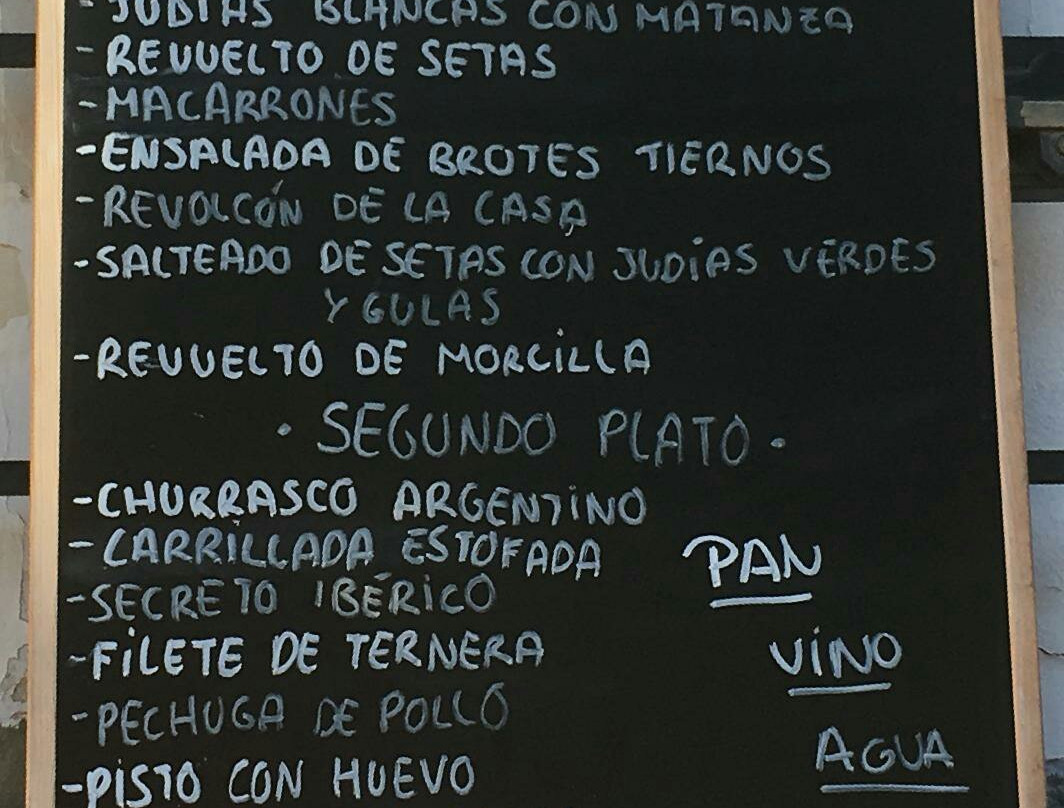 - JUDIAS BLANCAS CON MATANZA
- REVUELTO DE SETAS
- MACARRONES
- ENSALADA DE BROTES TIERNOS
- REVOLCÓN DE LA CASA
- SALTEADO DE SETAS CON JUDÍAS VERDES
Y GULAS
- REVUELTO DE MORCILLA
· SEGUNDO PLATO ·
- CHURRASCO ARGENTINO
- CARRILLADA ESTOFADA
- SECRETO IBÉRICO
- FILETE DE TERNERA
- PECHUGA DE POLLO
- PISTO CON HUEVO
PAN
VINO
AGUA